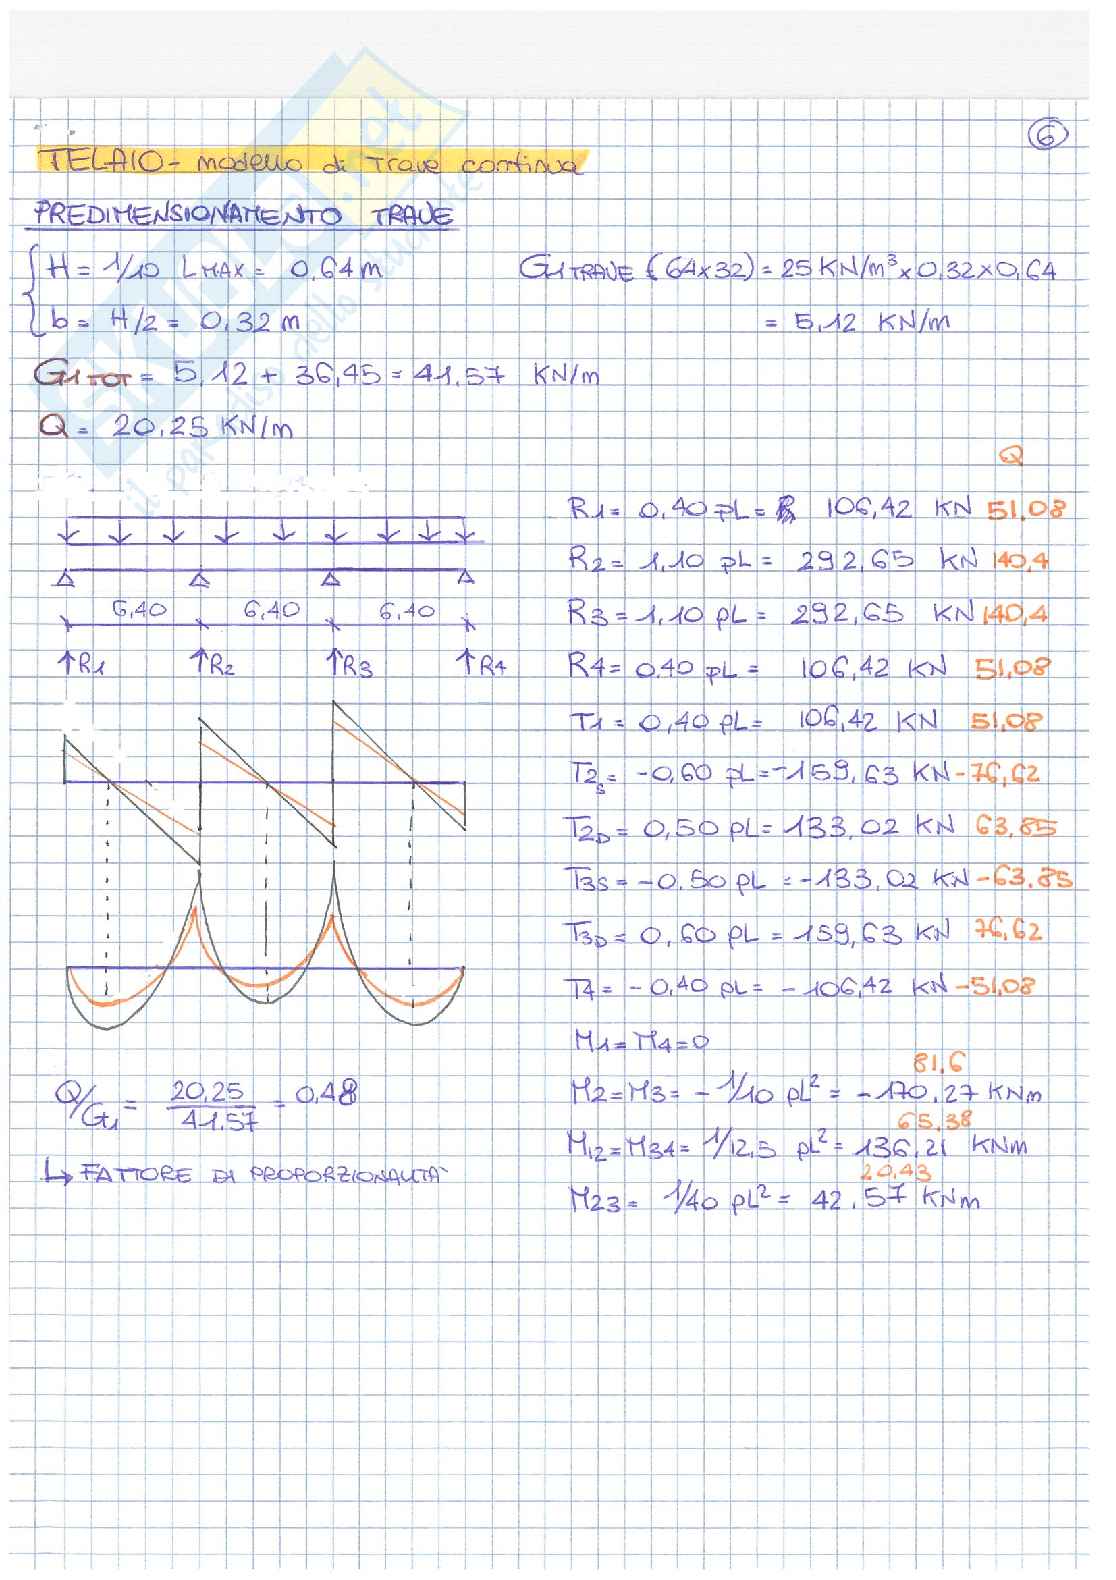 6
TELAIO - modello di Trave continua
PREDIMENSIONAMENTO TRAVE
H = 1/10 LMAX = 0,64 m
G1 TRAVE (64x32) = 25 KN/m³ x 0,32 x 0,64
b = H/2 = 0,32 m
= 5,12 KN/m
G1 TOT = 5,12 + 36,45 = 41,57 KN/m
Q = 20,25 KN/m
Q
R1 = 0,40 pL = 106,42 KN 51,08
R2 = 1,10 pL = 292,65 KN 140,4
R3 = 1,10 pL = 292,65 KN 140,4
R4 = 0,40 pL = 106,42 KN 51,08
T1 = 0,40 pL = 106,42 KN 51,08
T2s = -0,60 pL = -159,63 KN -76,62
T2D = 0,50 pL = 133,02 KN 63,85
T3S = -0,50 pL = -133,02 KN -63,85
T3D = 0,60 pL = 159,63 KN 76,62
T4 = -0,40 pL = -106,42 KN -51,08
M1 = M4 = 0
81,6
M2 = M3 = -1/10 pL² = -170,27 KNm
65,38
M12 = M34 = 1/12,5 pL² = 136,21 KNm
20,43
M23 = 1/40 pL² = 42,57 KNm
6,40 6,40 6,40
↑R1 ↑R2 ↑R3 ↑R4
Q/G1 = 20,25/41,57 = 0,48
↳ FATTORE DI PROPORZIONALITA'
SKUOLA.net
il paradiso dello studente